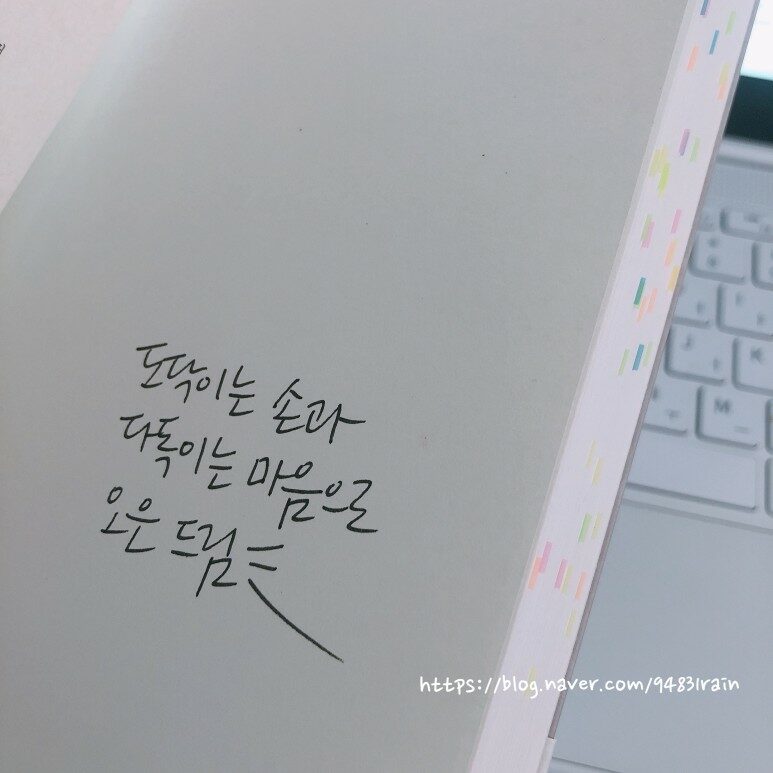 도닥이는 손과
다독이는 마음으로
오은 드림
https://blog.naver.com/9483lrain